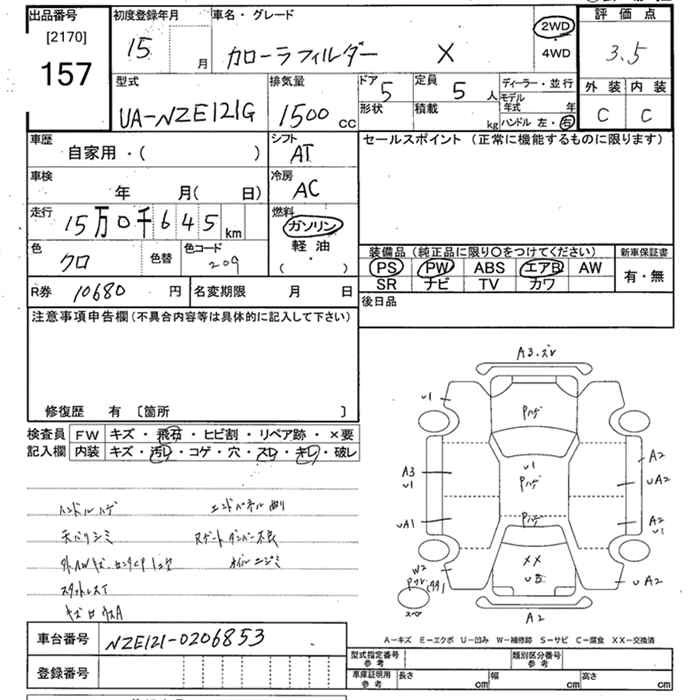 出品番号 初度登録年月 車名・グレード 評価点
[2170]
157
15 月 カローラフィルダー X 2WD 4WD 3.5
型式 排気量 ドア 定員 ディーラー・並行 外装 内装
UA-NZE121G 1500 cc 5 5 人 モデル年式 年 C C
形状 積載 kg ハンドル 左・右
車歴 シフト セールスポイント (正常に機能するものに限ります)
自家用・( ) AT
車検 冷房
年 月( 日) AC
走行 燃料
15万0千645 km ガソリン
軽油
( ・ )
色 色替 色コード 装備品 (純正品に限り〇をつけてください) 新車保証書
クロ 209 PS PW ABS エアB AW 有・無
SR ナビ TV カワ
R券 10680 円 名変期限 月 日 後日品
注意事項申告欄 (不具合内容等は具体的に記入して下さい)
修復歴 有 [箇所 ]
検査員 FW キズ・飛石・ヒビ割・リペア跡・×要
記入欄 内装 キズ・汚レ・コゲ・穴・スレ・キレ・破レ
ハンドルハゲ エンドパネル曲り
天バリシミ
オイルニジミ
A3.ズレ
U1
Pハゲ
A3
U1
U1
Pハゲ
A2
UA2
UA1
Pハゲ
A2
U1
W2
XX
UA2
スペア
A2
A-キズ E-エクボ U-凹み W-補修跡 S-サビ C-腐食 XX-交換済
車台番号 NZE121-0206853
登録番号
型式指定番号 参考 類別区分番号 参考
車庫証明用 参考 長さ cm 幅 cm 高さ cm